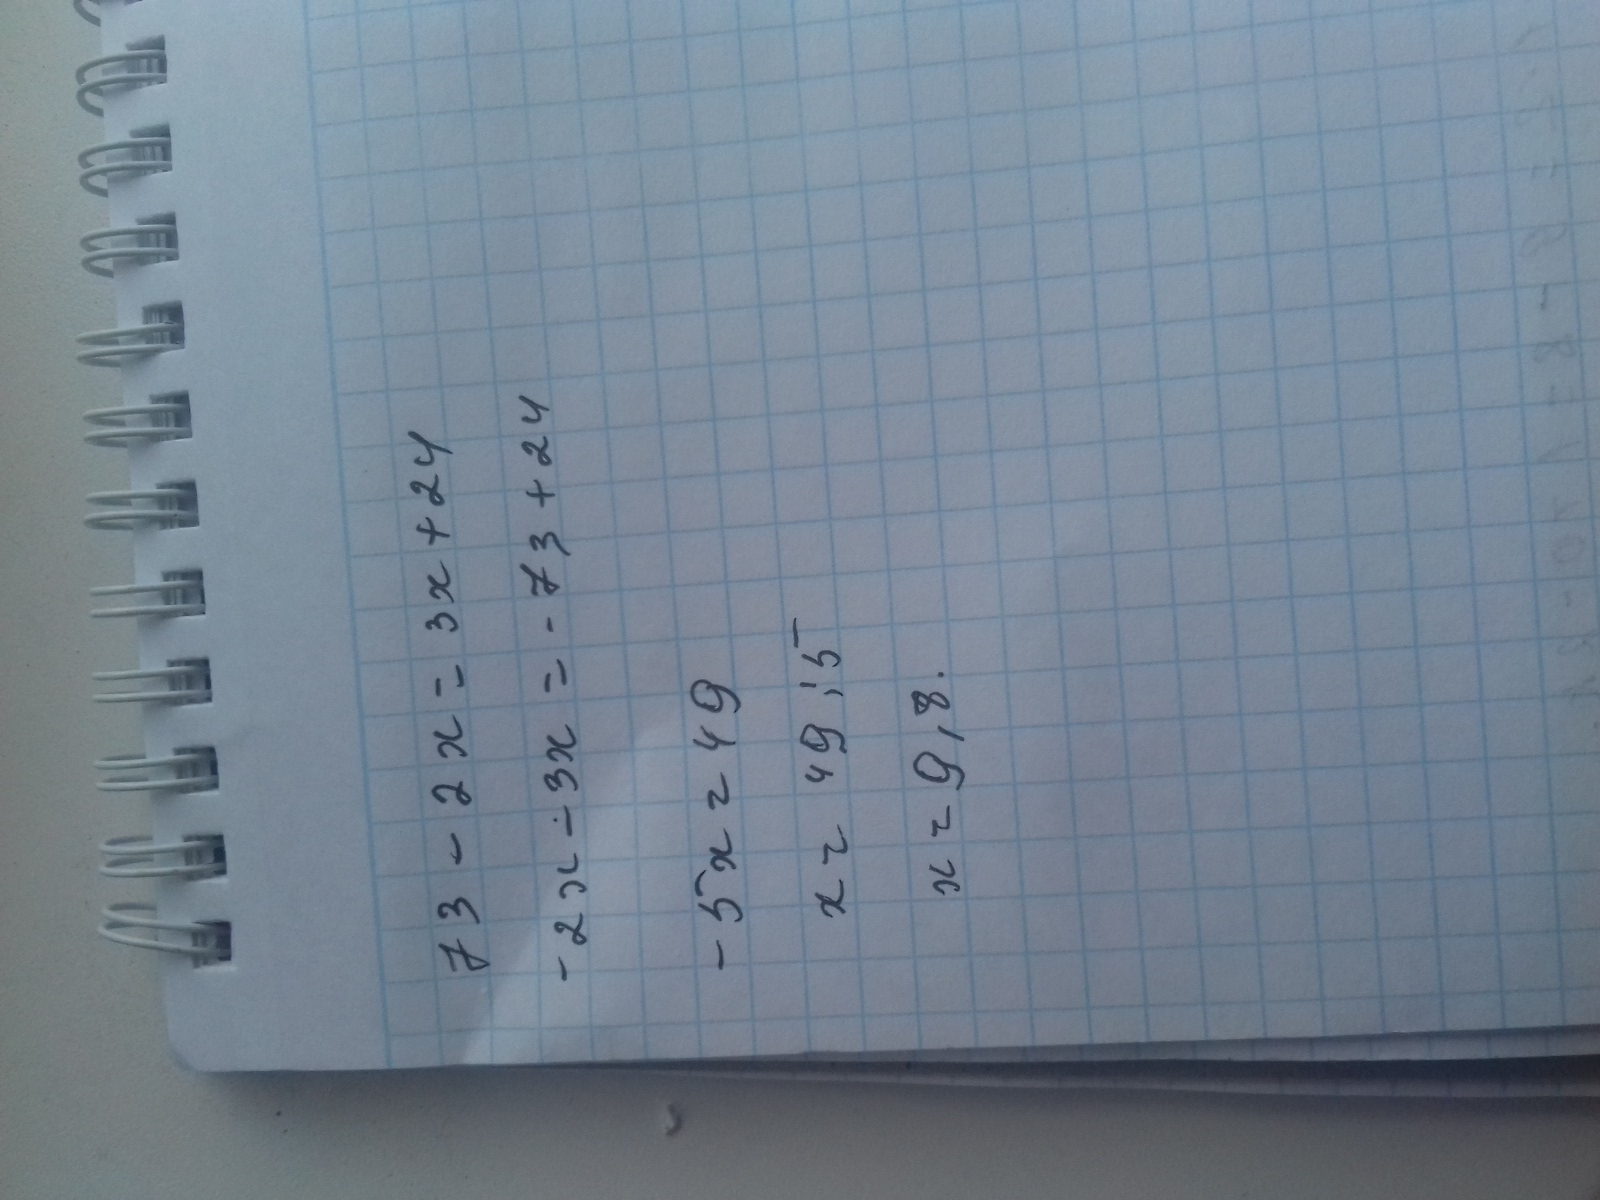 73 - 2x = 3x + 24
-2x - 3x = -73 + 24
-5x = 49
x = 49 : 5
x = 9,8.